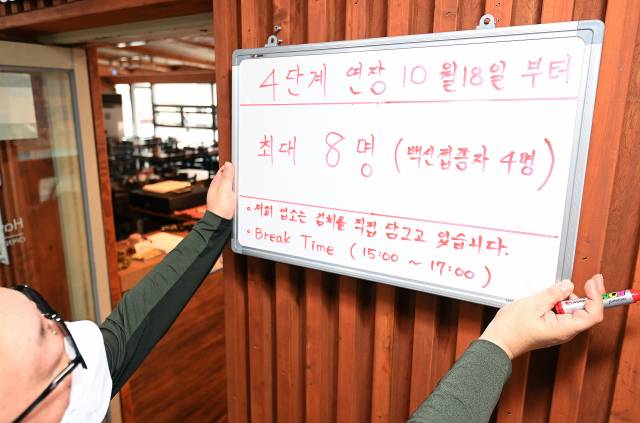 4단계 연장 10월18일 부터
최대 8명 (백신접종자 4명)
• 저희 업소는 김치를 직접 담그고 있습니다.
• Break Time (15:00 ~ 17:00)